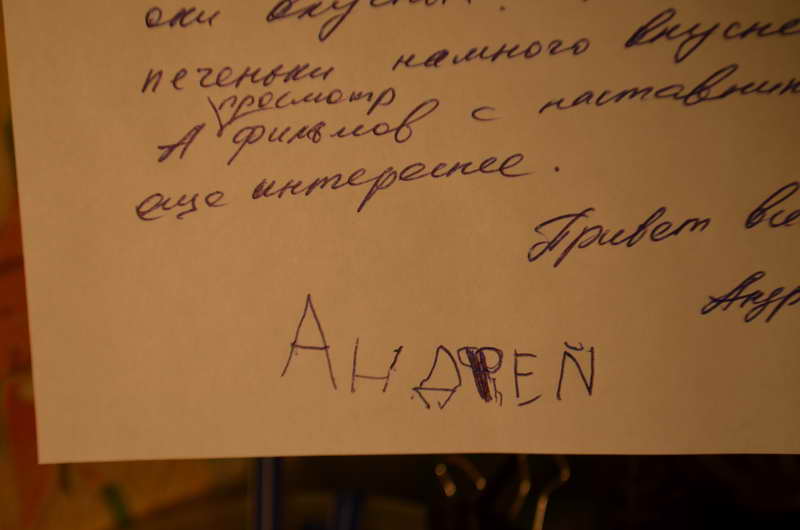 они вкусные.
печеньки намного вкусне
просмотр
А фильмов с наставник
еще интереснее.
Привет все
Андр
АНДРЕЙ